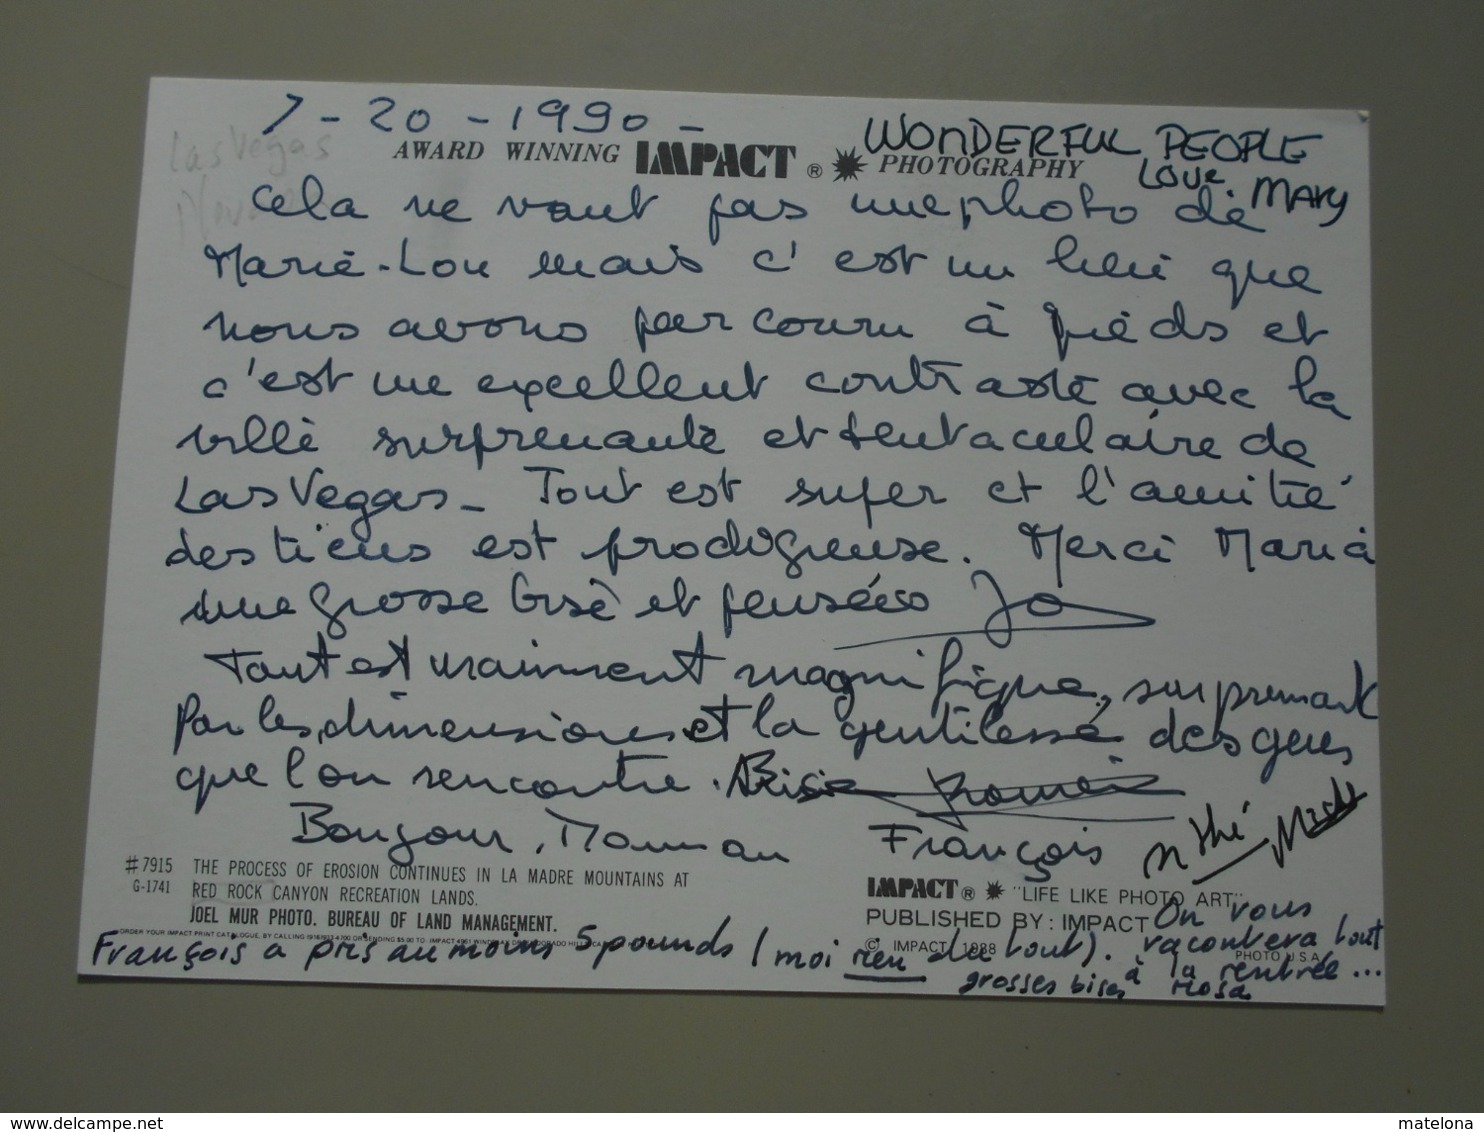 7-20-1990-
Las Vegas
AWARD WINNING IMPACT ® PHOTOGRAPHY
WONDERFUL PEOPLE
Love. MARY
Cela ne vaut pas une photo de
Marie-Lou mais c'est un lieu que
nous avons parcouru à pieds et
c'est une excellent contraste avec la
ville surprenante et tentaculaire de
Las Vegas_ Tout est super et l'amitié
des tiens est prodigieuse. Merci Maria
une grosse bise et pensées Jo
Tout est vraiment magnifique, surprenant
Par les dimensions et la gentillesse des gens
que l'on rencontre.
Bonjour, Maman François
#7915 THE PROCESS OF EROSION CONTINUES IN LA MADRE MOUNTAINS AT
G-1741 RED ROCK CANYON RECREATION LANDS.
JOEL MUR PHOTO. BUREAU OF LAND MANAGEMENT.
IMPACT ® "LIFE LIKE PHOTO ART"
PUBLISHED BY: IMPACT
© IMPACT 1988
PHOTO U.S.A.
François a pris au moins 5 pounds (moi rien du tout). On vous
racontera tout
à la rentrée...
grosses bises à Rosa
delcampe.net
matelona